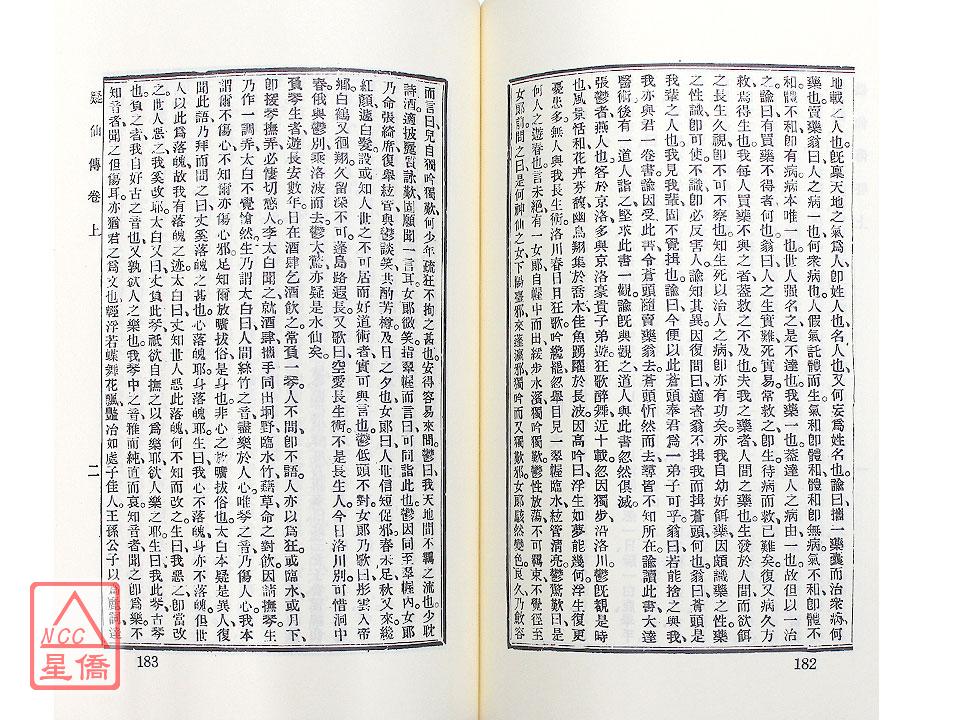 地載之人也旣稟天地之氣爲人卽姓人也名人也又何妄爲姓名也論攜一藥囊而治衆病何
藥也賣藥翁曰人之病一也何衆病也人假氣託體而生氣和卽體和體和卽無病氣不和卽體不
和體不和卽有病病本唯一也世人强名之是不達也我藥一也蓋達人之病由一也故但以一治
之論曰有買藥不得者何也翁曰人之生實難死實易常救之卽生待病而救已難矣復又病久方
救焉得生也我每人買藥不與之者蓋救之不及也夫我之藥者人間之藥也生發於人間而欲餌
之長生久視卽不可也知生死以治人之病卽亦有功矣亦我自幼好餌藥因頗識藥之性藥
之性識卽可使不識不察也不識卽必反害人論知其異因復問曰適者翁不揖我而揖蒼頭何也翁曰蒼頭等
我輩之人也我見我輩固不覺揖也論曰今便以此蒼頭奉君爲一弟子可乎翁曰若能捨之與我
我亦與君一卷書論因受此書令蒼頭隨賣藥翁去蒼頭忻然而去尋皆不知所在論讀此書大達
醫術後有一道人詣之堅求此書一觀論旣與觀之道人與此書忽然俱滅
張鬱者燕人也客於京洛多與京洛豪貴子弟遊狂歌醉舞近十載忽因獨步沿洛川鬱旣觀是時
也風景恬和花卉芬馥幽鳥翔集於喬木佳魚踴躍於長波因高吟曰浮生如夢能幾何浮生復更
憂患多無人與我長生術洛川春日且狂歌吟纔罷忽舉目見一翠幄臨水絃管淸亮鬱驚歎曰是
何人之遊春也言未絶有一女郎自幄中而出緩步水濱獨吟獨歎鬱性放蕩不可羈束不覺徑至
女郎前問之曰是何神仙之女下陽臺邪來蓬瀛邪獨吟而又獨歎邪女郎駭然變色良久乃斂容
182
而言曰兒自獨吟獨歎何少年疏狂不拘之甚也安得容易來問鬱曰我天地間不羈之流也少耽
詩酒適披麗質詠歎固願聞一言耳女郎微笑指翠幄而言曰可同詣此也鬱因同至翠幄內女郎
乃命張綺席復舉絃管與鬱談笑共酌芳樽及日之夕也女郎曰人世信短促邪春未足秋又來纔
紅顏遽白髮設或知人世之不可居而好道術者實可與言也鬱低頭不對女郎乃歌曰彤雲入帝
鄕白鶴又徊翔久留深不可蓬島路遐長又歌曰空愛長生術不是長生人今日洛川別可惜洞中
春俄與鬱別乘洛波而去鬱大驚亦疑是水仙矣
負琴生者遊長安數年日在酒肆乞酒飮之常負一琴人不問卽不語人亦以爲狂或臨水或月下
卽援琴撫弄必悽切感人李太白聞之就酒肆攜手同出坰野臨水竹藉草命之對飮因請撫琴生
乃作一調弄太白不覺愴然生乃謂太白曰人間絲竹之音盡樂於人心唯琴之音乃傷人心我本
謂爾不傷心不知爾亦傷心邪足知爾放曠拔俗是身也非心之放曠拔俗也太白本疑是異人復
聞此語乃拜而問之曰丈奚落魄之甚也心落魄邪身落魄邪生曰我心不落魄身亦不落魄但世
人以此爲落魄故我有落魄之迹太白曰丈知世人惡此落魄何不知而改之生曰我惡之卽當改
之世人惡之我奚改邪太白又曰丈負此琴祇欲自撫之以爲樂耶欲人樂之耶生曰我此琴古琴
也負之者我自好古之音也又孰欲人之樂也我琴中之音雅而純直而哀知音者聞之卽爲樂不
知音者聞之但傷耳亦猶君之爲文也輕浮若蝶舞花飄豔冶如處子佳人王孫公子以爲麗詞達
疑仙傳卷上
二
183
NCC
星僑